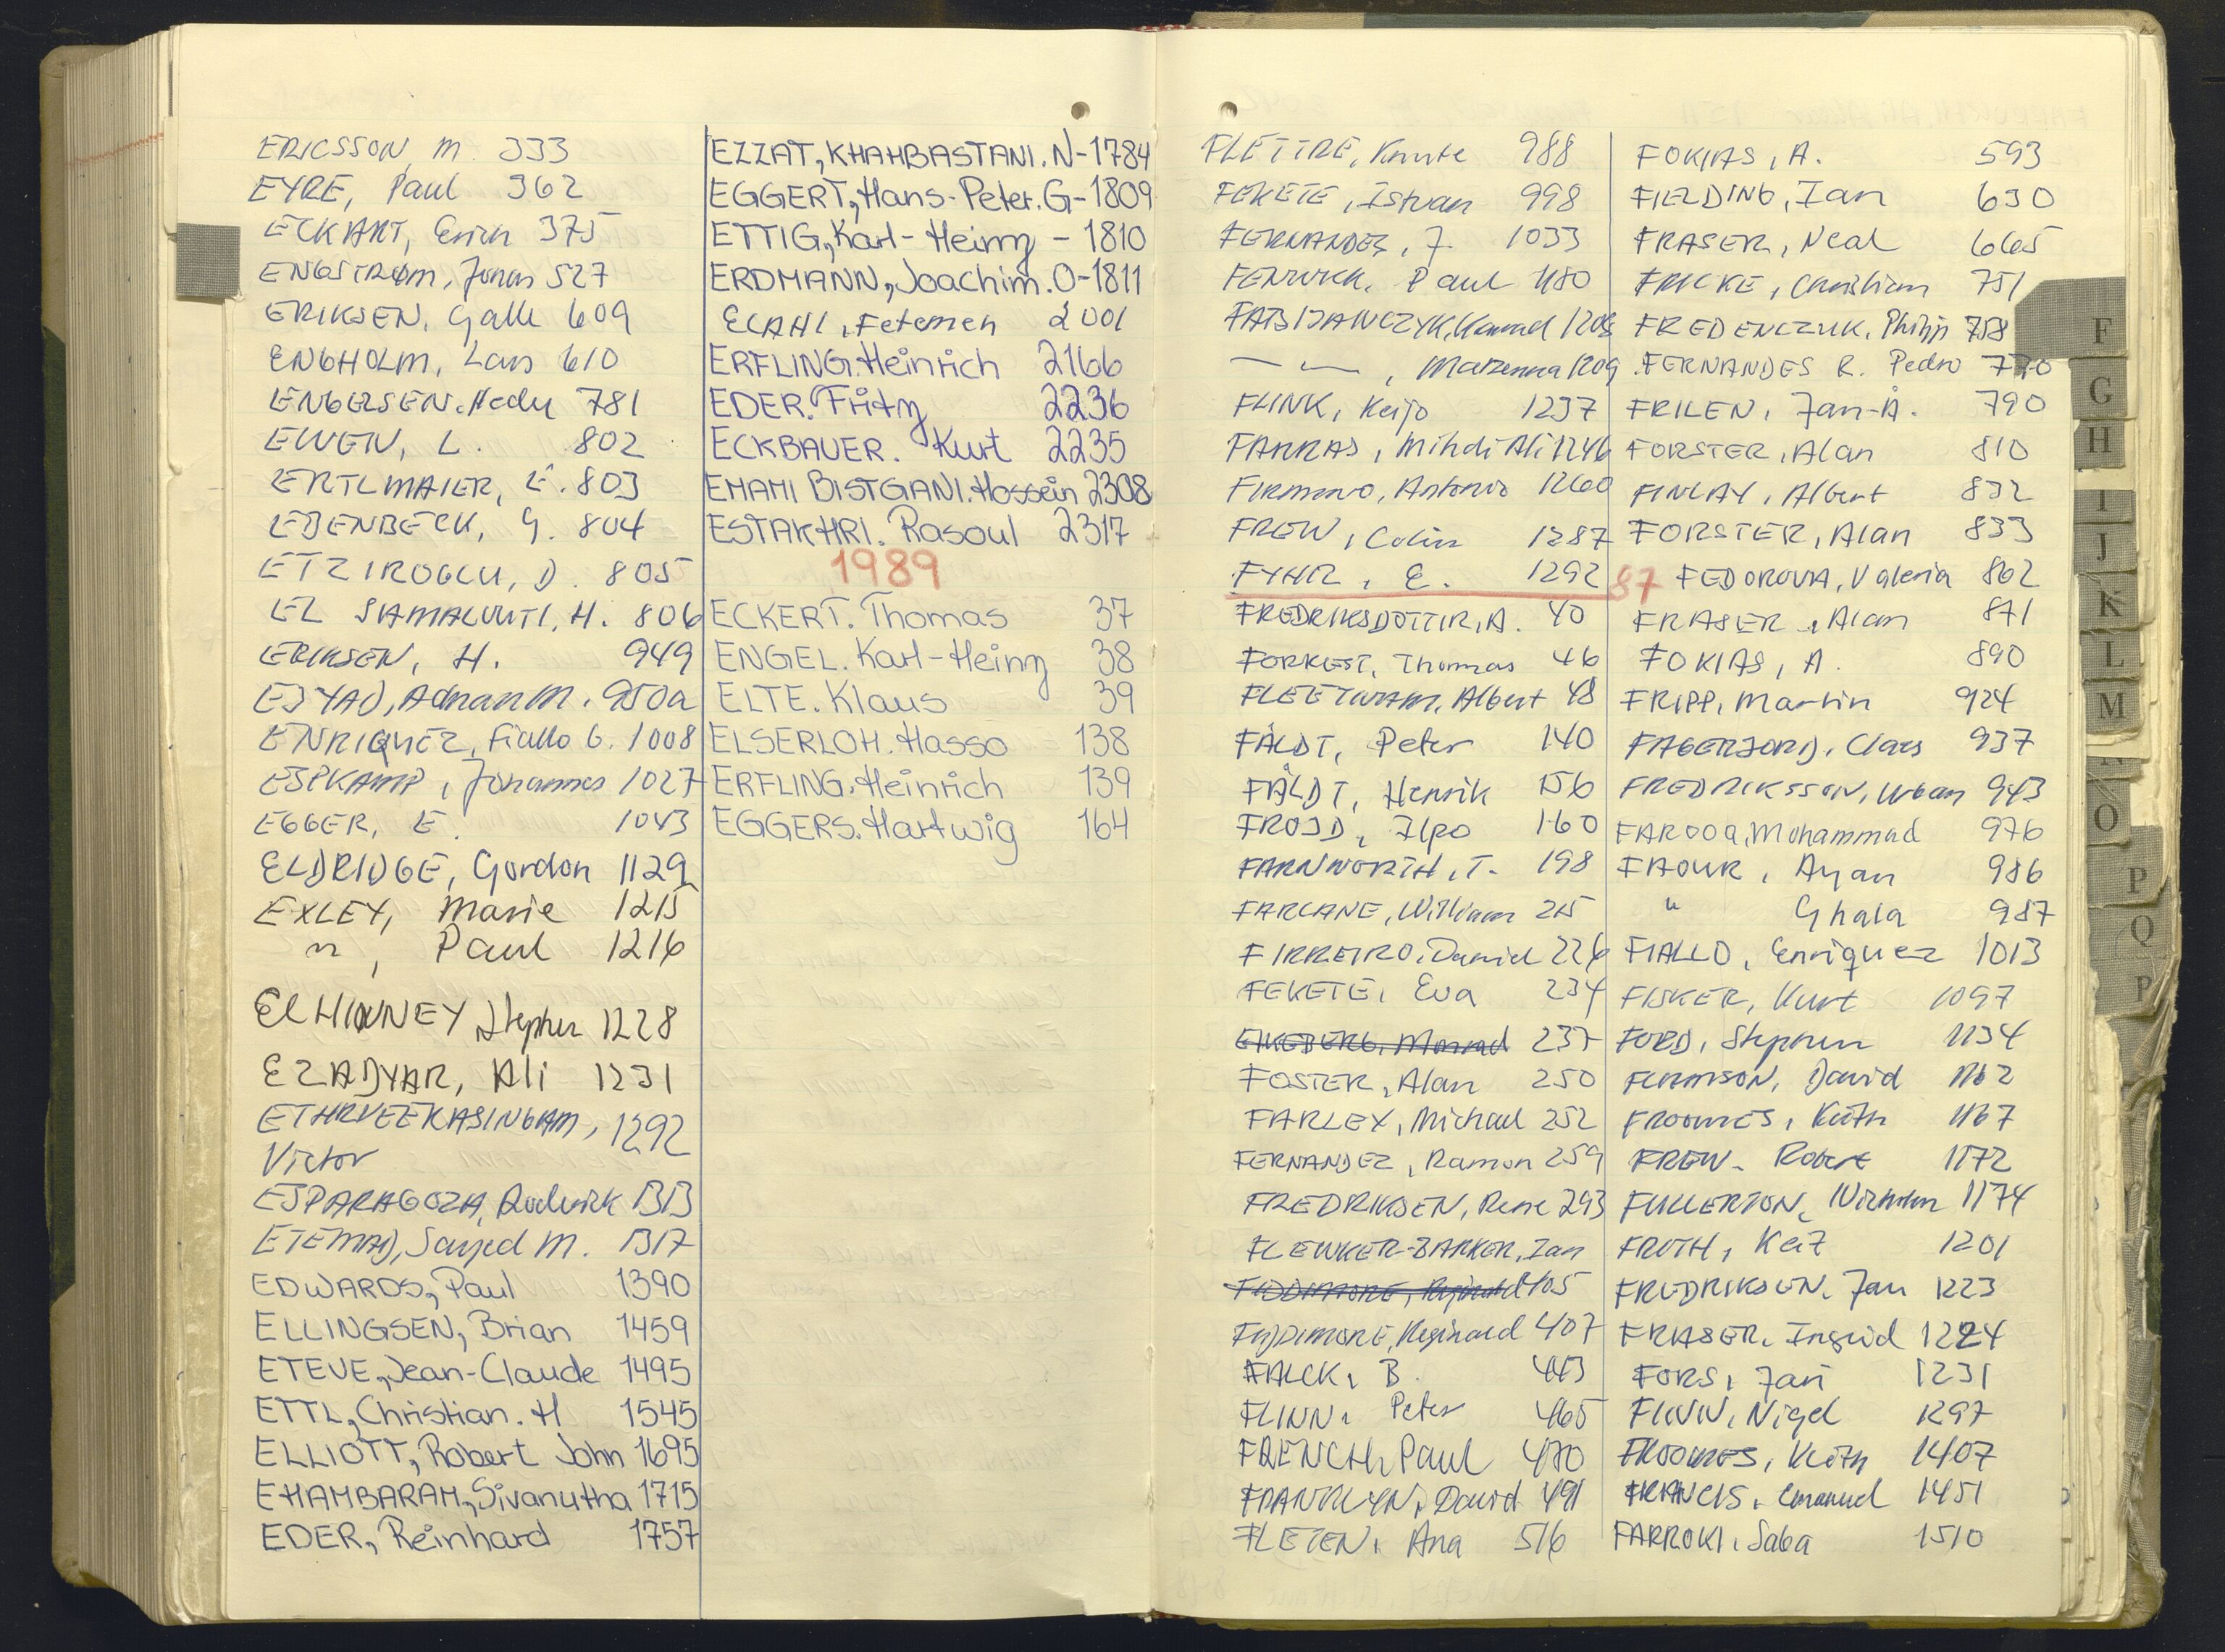 ERICSSON, M. 333
EYRE, Paul 362
ECKART, Erich 375
ENGSTRØM, Jonas 527
ERIKSEN, Galle 609
ENGHOLM, Lars 610
ENGELSEN, Hedy 781
EWEN, L. 802
ERTLMAIER, E. 803
EBENBECK, G. 804
ETZIROGLU, D. 805
EL 806
ERIKSEN, H. 949
EJYAD, Adnan M. 950a
ENRIQUEZ, Fiallo G. 1008
ESPKAMP, Johannes 1027
EGGER, E. 1043
ELDRIDGE, Gordon 1129
EXLEY, Marie 1215
" , Paul 1216
El HINNEY, Stephen 1228
EZADYAR, Ali 1231
ETHRVEEKASINGAM, 1292
Victor
ESPARAGOZA, Roderick 1313
ETEMAD, Sayed M. 1317
EDWARDS, Paul 1390
ELLINGSEN, Brian 1459
ETEVE, Jean-Claude 1495
ETTL, Christian. H 1545
ELLIOTT, Robert John 1695
EHAMBARAM, Sivanutha 1715
EDER, Reinhard 1757
EZZAT, KHAHBASTANI. N-1784
EGGERT, Hans-Peter. G-1809
ETTIG, Karl-Heinz - 1810
ERDMANN, Joachim. O-1811
ELAHI, Fetemeh 2001
ERFLING. Heinrich 2166
EDER. Fritz 2236
ECKBAUER. Kurt 2235
EMAMI BISTGANI. Hossein 2308
ESTAKHRI. Rasoul 2317
1989
ECKERT. Thomas 37
ENGEL. Karl-Heinz 38
ELTE. Klaus 39
ELSERLOH. Hasso 138
ERFLING. Heinrich 139
EGGERS. Hartwig 164
FLETTRE, Knute 988
FEKETE, Istvan 998
FERNANDEZ, J. 1033
FENWICK, Paul 1180
1208
— — , Marzenna 1209
FLINK, Keijo 1237
FARRAS, Mihdi Ali 1246
FIRMINO, Antonio 1260
FREW, Colin 1287
FYHR, E. 1292 87
FREDRIKSDOTTIR, A. 40
FORREST, Thomas 46
FLEETWAM, Albert 48
FÄLDT, Peter 140
FÄLDT, Henrik 156
FROJD, Ilpo 160
FARNWORTH, T. 198
FARLANE, William 215
FIRREIRO, Daniel 226
FEKETE, Eva 234
237
FOSTER, Alan 250
FARLEY, Michael 252
FERNANDEZ, Ramon 259
FREDRIKSEN, Rene 293
FLEWKER-BARKER, Ian
FIDDIMORE, Reginald 405
FIDDIMORE, Reginald 407
FALCK, B. 443
FLINN, Peter 465
FRENCH, Paul 470
FRANKLYN, David 491
FLETEN, Ana 516
FOKIAS, A. 593
FIELDING, Ian 630
FRASER, Neal 665
FRICKE, Christian 751
FREDENCZUK, Philip 758
FERNANDES R. Pedro 770
FRILEN, Jan-Å. 790
FORSTER, Alan 810
FINLAY, Albert 832
FORSTER, Alan 833
FEDOROVA, Valeria 862
FRASER, Alan 871
FOKIAS, A. 890
FRIPP, Martin 924
FAGERJORD, Claes 937
FREDRIKSSON, Urban 943
FAROOQ, Mohammad 976
FAOUR, Ayan 986
" Ghala 987
FIALLO, Enriquez 1013
FISKER, Kurt 1097
FORD, Stephen 1134
FURMSON, David 1162
FROOMES, Keith 1167
FREW, Robert 1172
FULLERTON, 1174
FRUTH, Keit 1201
FREDRIKSEN, Jan 1223
FRASER, Ingrid 1224
FORS, Jari 1231
FINN, Nigel 1297
FROOMES, Keith 1407
FRANCIS, Emanuel 1451
FARROKI, Saba 1510
F
G
H
I
J
K
L
M
O
P
Q
P